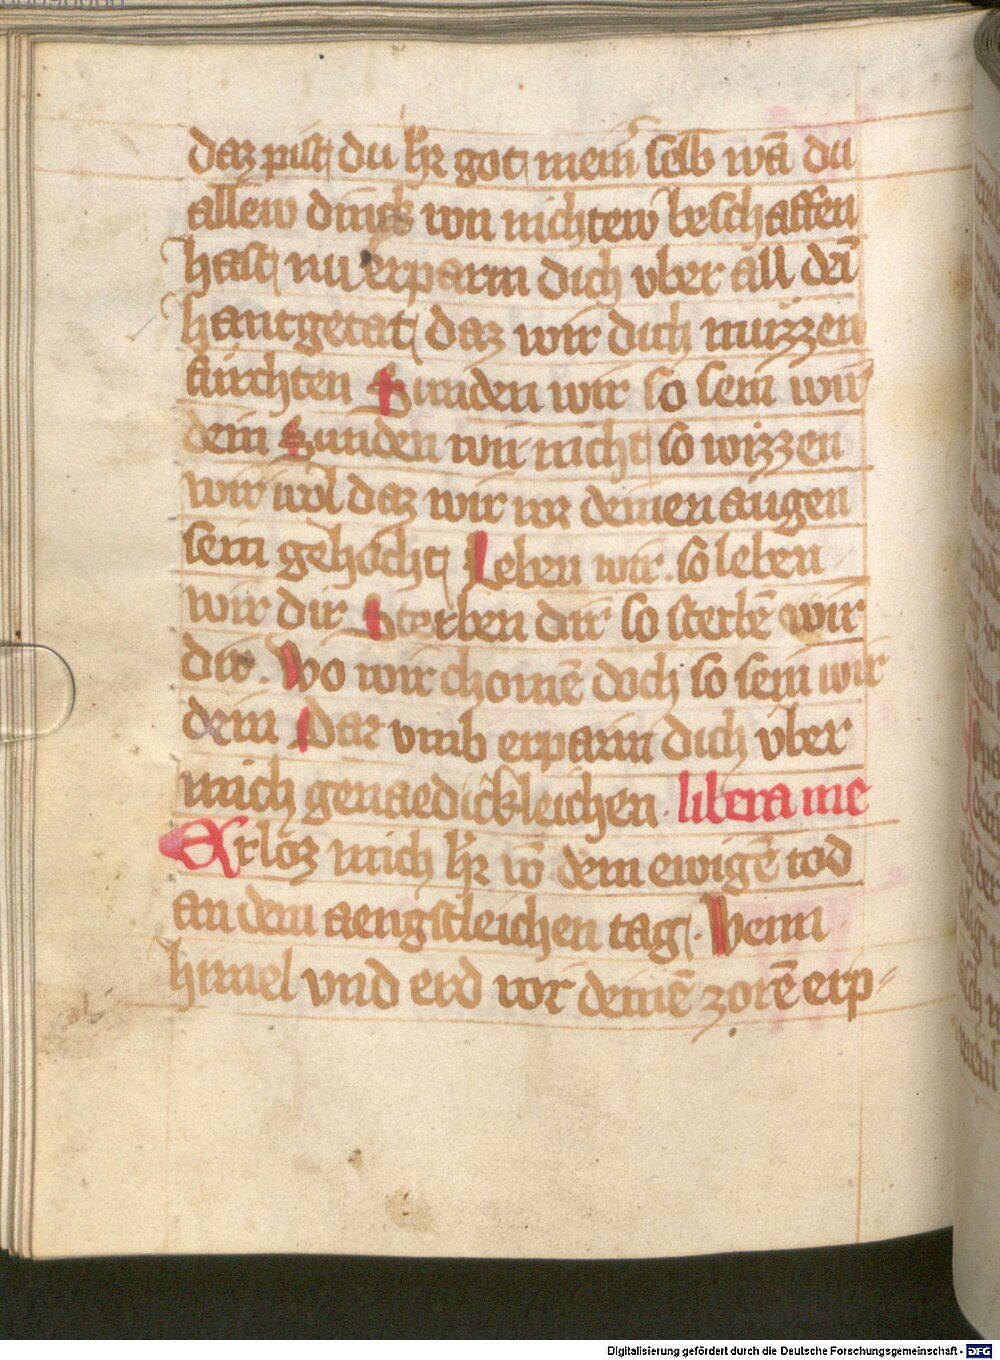 daz pist du hr̄ got meīn selb wā du
allew dinck von nichtew beschaffen
hast nu erparm dich vber all dei̅
hantgetat daz wir dich muͤzzen
furchten Sunden wir so sein wir
dein Sunden wir nicht so wizzen
wir wol daz wir vor deinen augen
sein gehocht Leben wir. so leben
wir dir Sterben dir so sterbē wir
dir. Wo wir chomē doch so sein wir
dein Dar vmb erparm dich vber
mich genaedickleichen. libera me
Erloz mich hr̄ vō dem ewigē tod
an dem aengstleichen tag. Wenn
himel vnd erd vor deinē zorē erp-
Digitalisierung gefördert durch die Deutsche Forschungsgemeinschaft - DFG